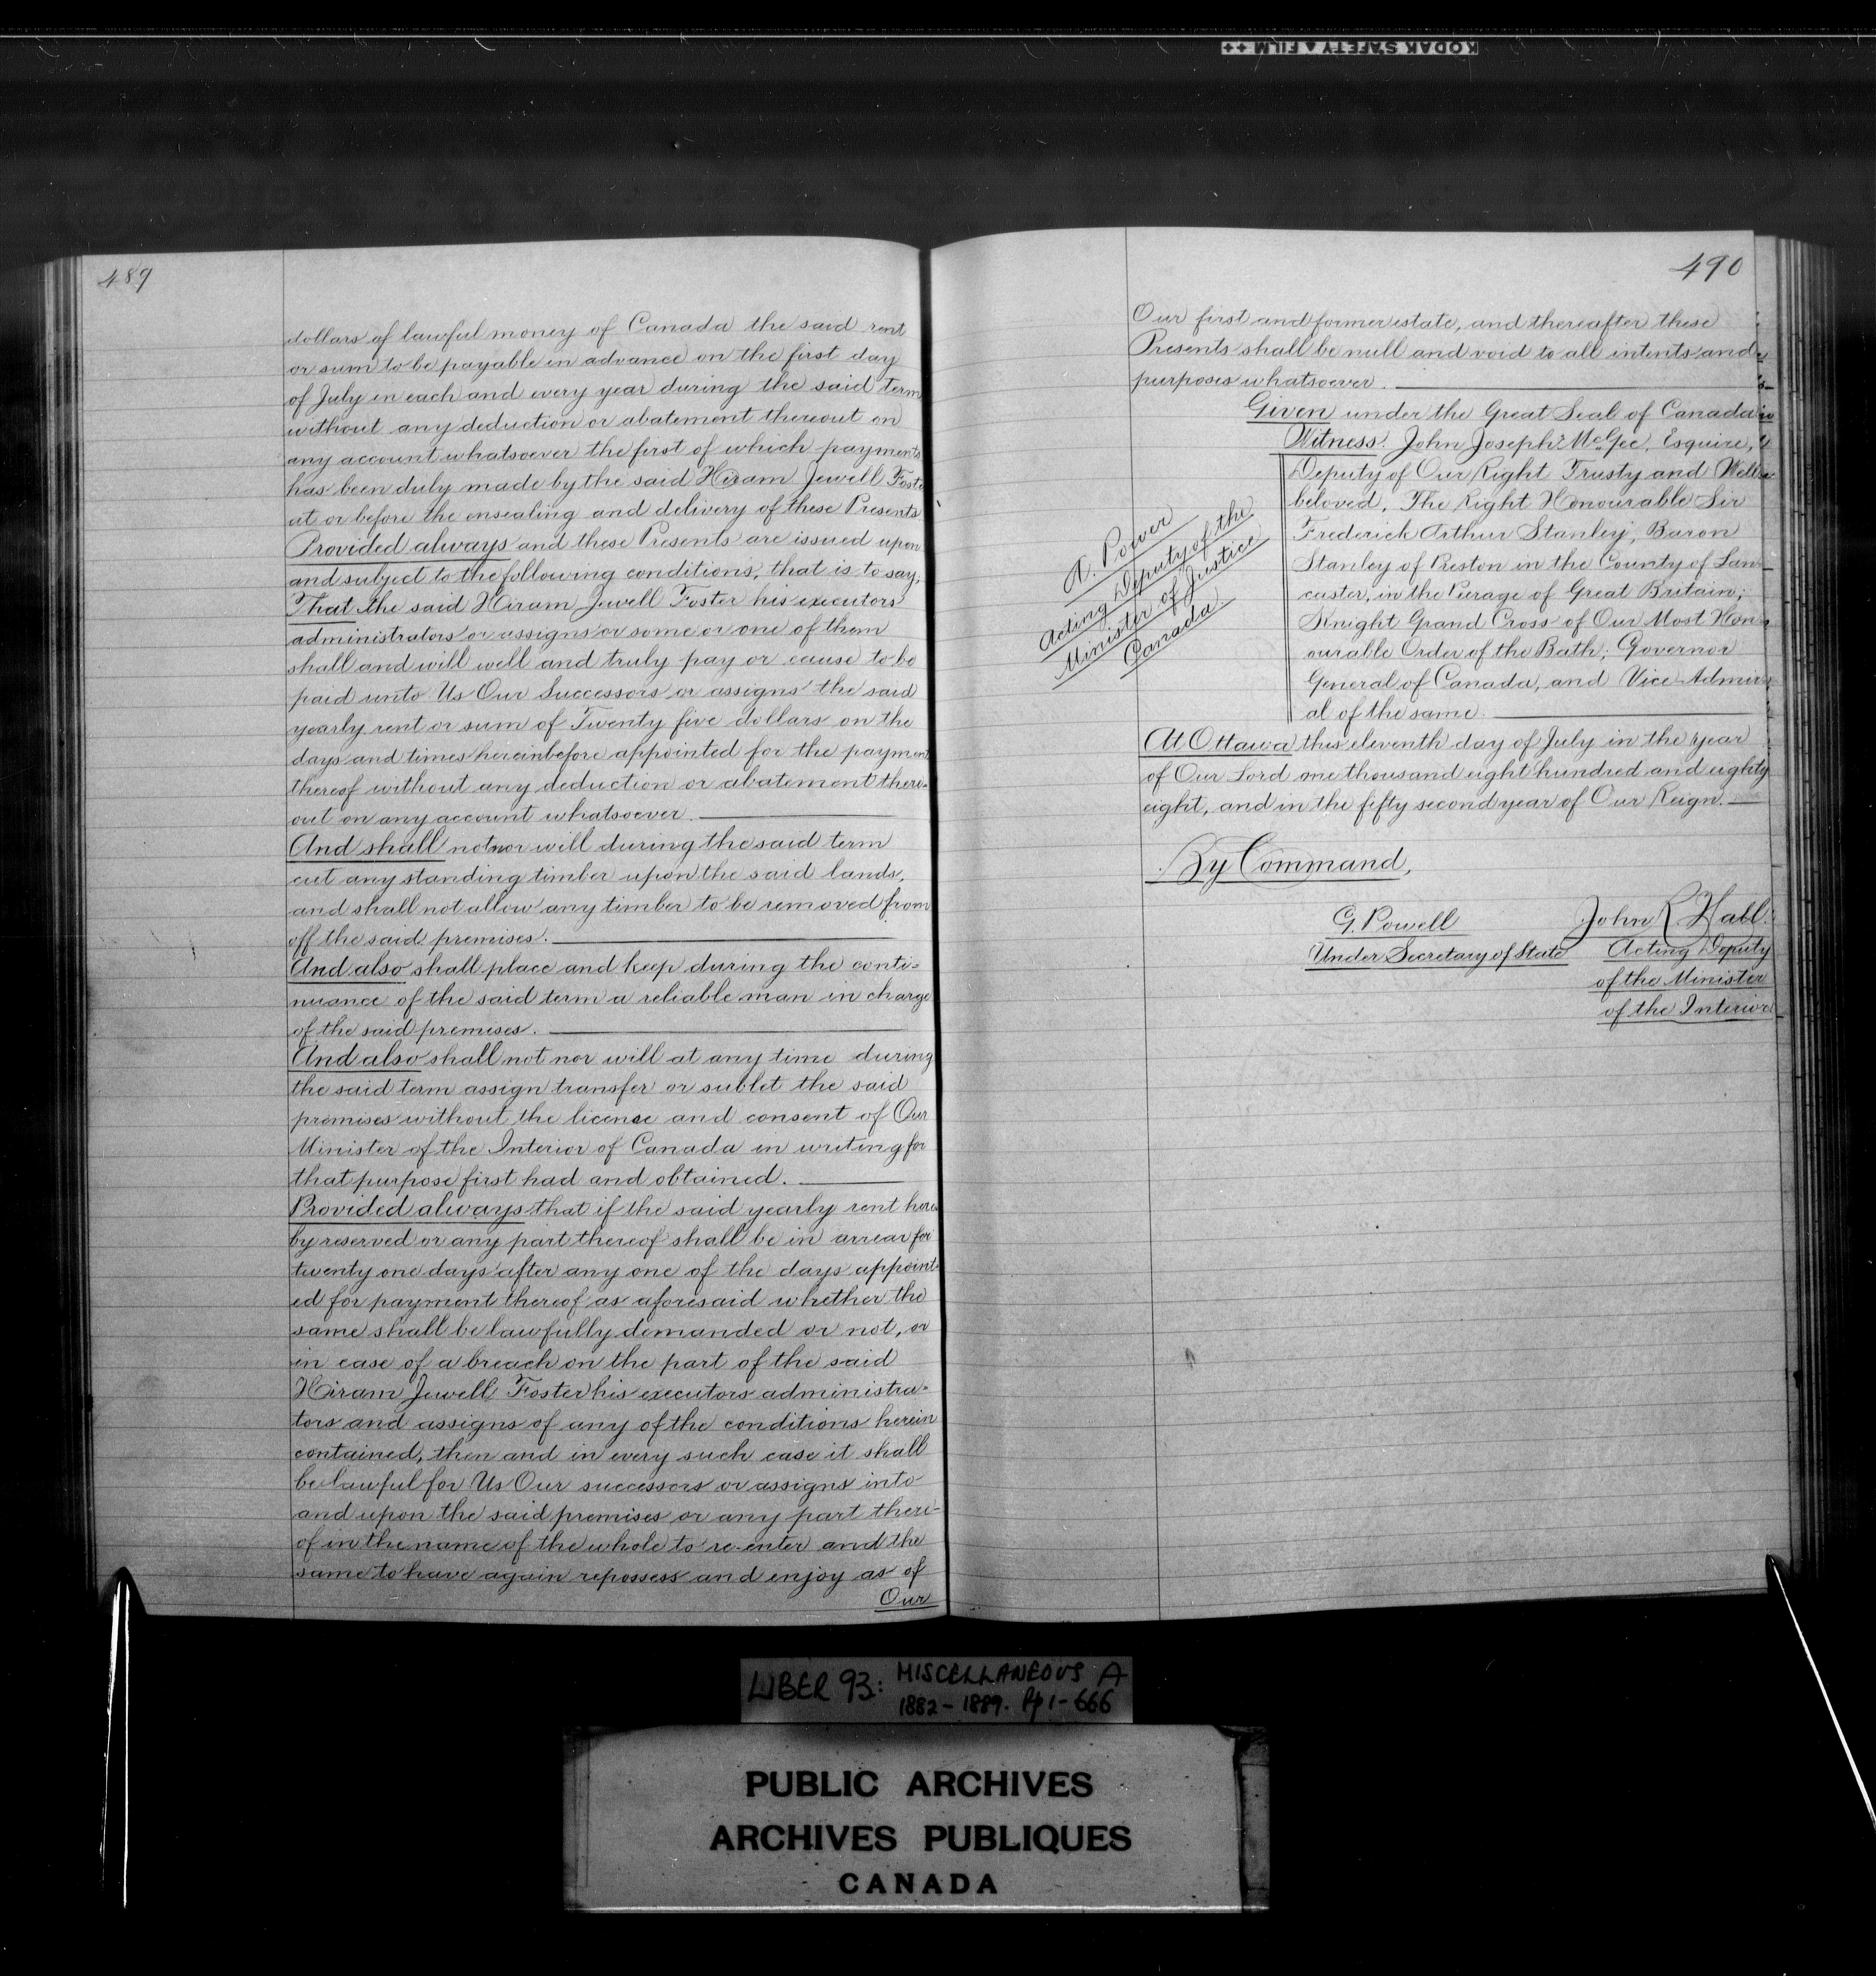 KODAK SAFETY FILM
489
dollars of lawful money of Canada the said rent
or sum to be payable in advance on the first day
of July in each and every year during the said term
without any deduction or abatement thereout on
any account whatsoever the first of which payments
has been duly made by the said Hiram Jewell Foster
at or before the ensealing and delivery of these Presents
Provided always and these Presents are issued upon
and subject to the following conditions, that is to say;
That the said Hiram Jewell Foster his executors
administrators or assigns or some or one of them
shall and will well and truly pay or cause to be
paid unto Us Our Successors or assigns the said
yearly rent or sum of Twenty five dollars on the
days and times hereinbefore appointed for the payment
thereof without any deduction or abatement there-
out on any account whatsoever.
And shall not nor will during the said term
cut any standing timber upon the said lands,
and shall not allow any timber to be removed from
off the said premises.
And also shall place and keep during the conti-
nuance of the said term a reliable man in charge
of the said premises.
And also shall not nor will at any time during
the said term assign transfer or sublet the said
premises without the license and consent of Our
Minister of the Interior of Canada in writing for
that purpose first had and obtained.
Provided always that if the said yearly rent here-
by reserved or any part thereof shall be in arrear for
twenty one days after any one of the days appoint-
ed for payment thereof as aforesaid whether the
same shall be lawfully demanded or not, or
in case of a breach on the part of the said
Hiram Jewell Foster his executors administra-
tors and assigns of any of the conditions herein
contained, then and in every such case it shall
be lawful for Us Our successors or assigns into
and upon the said premises or any part there-
of in the name of the whole to re-enter and the
same to have again repossess and enjoy as of
Our
490
Our first and former estate, and thereafter these
Presents shall be null and void to all intents and
purposes whatsoever.
Given under the Great Seal of Canada
Witness. John Joseph McGee, Esquire,
Deputy of Our Right Trusty and Well-
beloved, The Right Honourable Sir
Frederick Arthur Stanley, Baron
Stanley of Preston in the County of Lan-
caster, in the Peerage of Great Britain;
Knight Grand Cross of Our Most Hon-
ourable Order of the Bath; Governor
General of Canada, and Vice-Admir-
al of the same.
A. Power
Acting Deputy of the
Minister of Justice
Canada
At Ottawa this eleventh day of July in the year
of Our Lord one thousand eight hundred and eighty
eight, and in the fifty second year of Our Reign.
By Command,
G. Powell
Under Secretary of State
John R Hall.
Acting Deputy
of the Minister
of the Interior
LIBER 93: MISCELLANEOUS A
1882-1889. Pp 1-666
PUBLIC ARCHIVES
ARCHIVES PUBLIQUES
CANADA